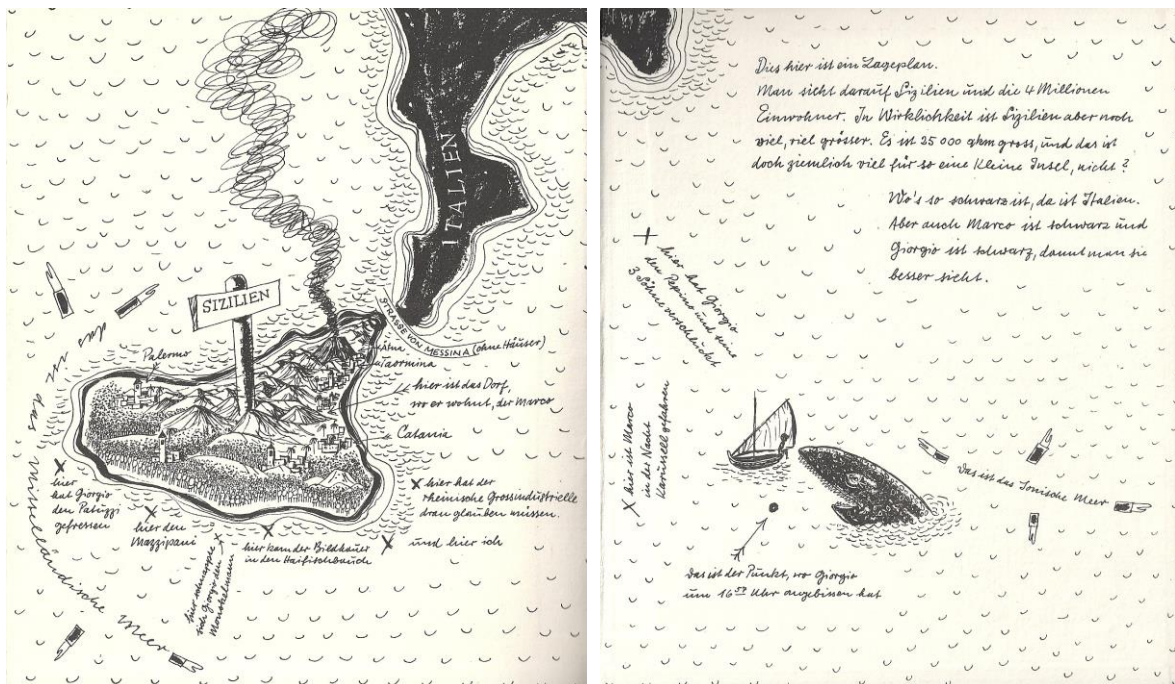 ITALIEN
SIZILIEN
STRASSE VON MESSINA (ohne Häuser)
Ätna
Taormina
Palermo
hier ist das Dorf,
wo er wohnt, der Marco
Catania
hier
hat Giorgio
den Patuzzi
gefressen
hier den
Mazzipani
hier schnappte
sich Giorgio den
hier kam der Bildhauer
in den Haifischbauch
hier hat der
rheinische Grossindustrielle
dran glauben müssen.
und hier ich
das ist das mittelländische Meer
Dies hier ist ein Lageplan.
Man sieht darauf Sizilien und die 4 Millionen
Einwohner. In Wirklichkeit ist Sizilien aber noch
viel, viel grösser. Es ist 25 000 qkm gross, und das ist
doch ziemlich viel für so eine kleine Insel, nicht?
Wo's so schwarz ist, da ist Italien.
Aber auch Marco ist schwarz und
Giorgio ist schwarz, damit man sie
besser sieht.
hier hat Giorgio
den Pepino und seine
3 Söhne verschluckt
hier ist Marco
in der Nacht
Karussell gefahren
Das ist das Jonische Meer
das ist der Punkt, wo Giorgio
um 16 Uhr angebissen hat